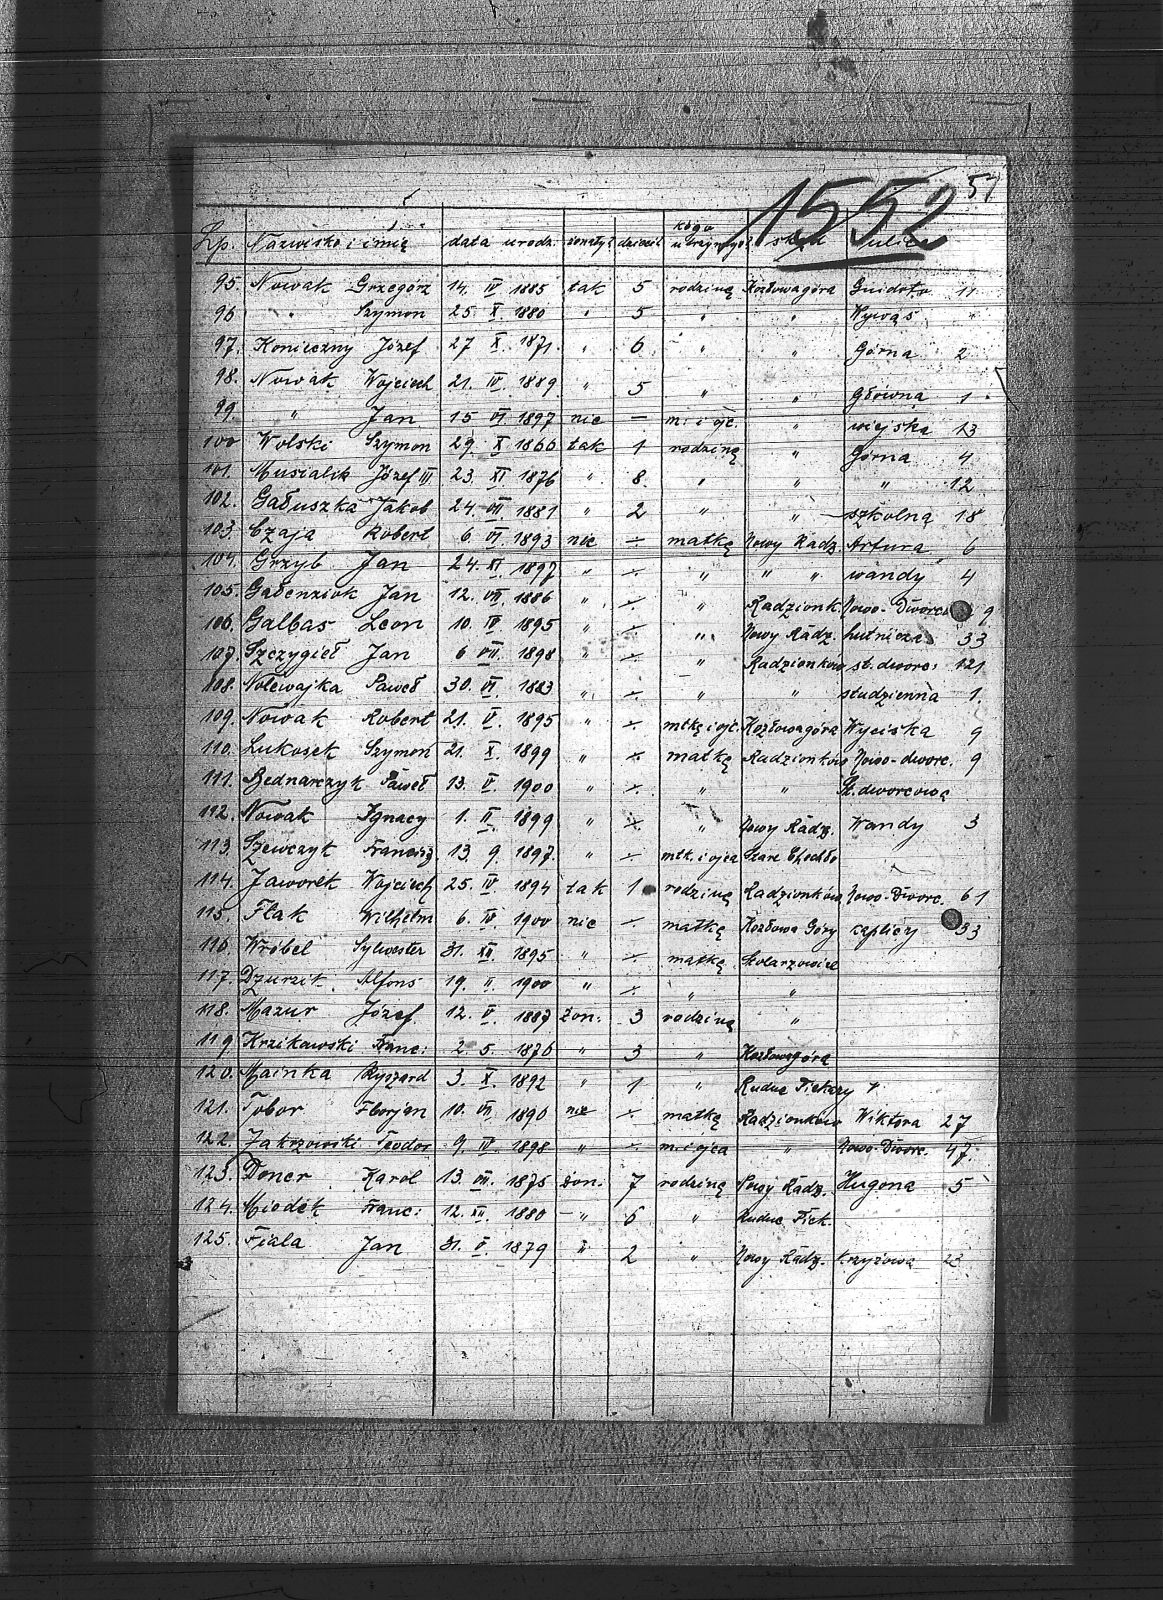 57
1552
Lp. Nazwisko i imię data urodz. żonaty dzieci kogo utrzymuje skąd ulica
95. Nowak Grzegórz 14. IV 1885 tak 5 rodziną Kozłowagóra Guidota 11
96 " Szymon 25. X. 1880 " 5 " " Wywąs "
97. Konieczny Józef 27 X. 1871. " 6 " " Górna 2
98. Nowak Wojciech 21. IV. 1889. " 5 " " Główna 1
99. " Jan 15 VI 1897 nie — m. i ojc. " wiejska 13
100 Wolski Szymon 29. X. 1866 tak 1 rodziną " Górna 4
101. Musialik Józef III 23. XI 1876 " 8. " " " 12
102. Gałuszka Jakob 24. VII 1881 " 2 " " szkolną 18
103. Czaja Robert 6 VI. 1893 nie ÷ matkę Nowy Radz. Artura 6
104. Grzyb Jan 24. XI 1897 " ÷ " " " wandy 4
105. Jan 12. VII. 1886 " ÷ " Radzionk Nowo-Dworc 9
106. Galbas Leon 10. IV 1895 " ÷ " Nowy Rádz. hutnicza 33
107. Szczygieł Jan 6 VIII. 1898 " ÷ " Radzionków st. dworc: 121
108. Nolewajka Paweł 30. VI. 1883 " ÷ " " studzienna 1.
109. Nowak Robert 21. V. 1895 " ÷ mtkę i ojc. Kozłowagóra Wyciska 9
110. Lukosek Szymon 21. X. 1899 " ÷ matkę Radzionków Nowo-dworc. 9
111. Bednarczyk Paweł 13. V. 1900 " ÷ " " St. dworcową
112. Nowak Ignacy 1. II. 1899 " ÷ " Nowy Rádz. Wandy 3
113. Szewczyk Francisz. 13. 9. 1897. " ÷ mtk. i ojca Stare Chechło
114. Jaworek Wojciech 25. IV 1894 tak 1 rodziną Radzionków Nowo-Dworc. 61
115. Flak Wilhelm 6. IV 1900 nie ÷ matkę Kozłowa Góry kaplicy 33
116. Wróbel Sylwester 31. XII. 1895 " ÷ matkę Stolarzowice
117. Alfons 19. II. 1900 " ÷ " "
118. Mazur Józef 12. V. 1887 żon. 3 rodziną "
119. Krzikawski Franc: 2. 5. 1876 " 3 " Kozłowagórą
120. Mainka Ryszard 3. X. 1892 " 1 " Rudne Piekary "
121. Tobor Florjan 10. VI 1890 nie ÷ matkę Radzionków Wiktora 27
122. Zakrzowski Teodor 9. IV 1898 " ÷ m. i ojca " Nowo-Dworc. 47.
123. Doner Karol 13. VII. 1875 żon. 7 rodziną Nowy Rádz. Hugona 5
124. Miodek Franc: 12. XII. 1880 — " 6 " Rudne Piek.
125. Fiala Jan 31. V 1879 " 2 " Nowy Rádz. krzyżową 23